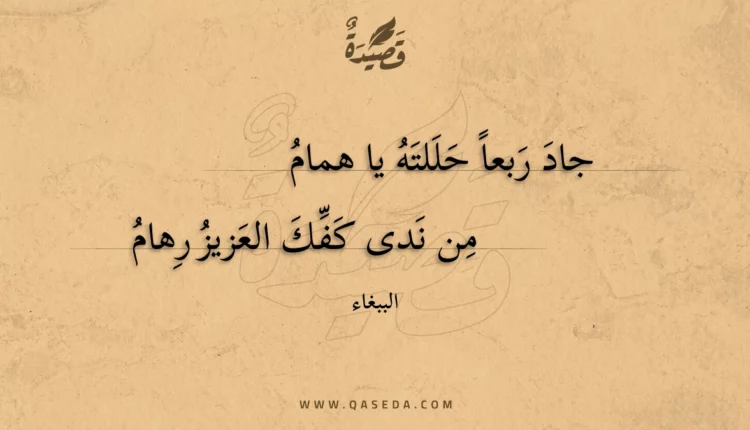 قَصِيْدَةٌ
جادَ رَبعاً حَلَلتَهُ يا همامُ
مِن نَدى كَفِّكَ العَزيزُ رِهامُ
الببغاء
WWW.QASEDA.COM